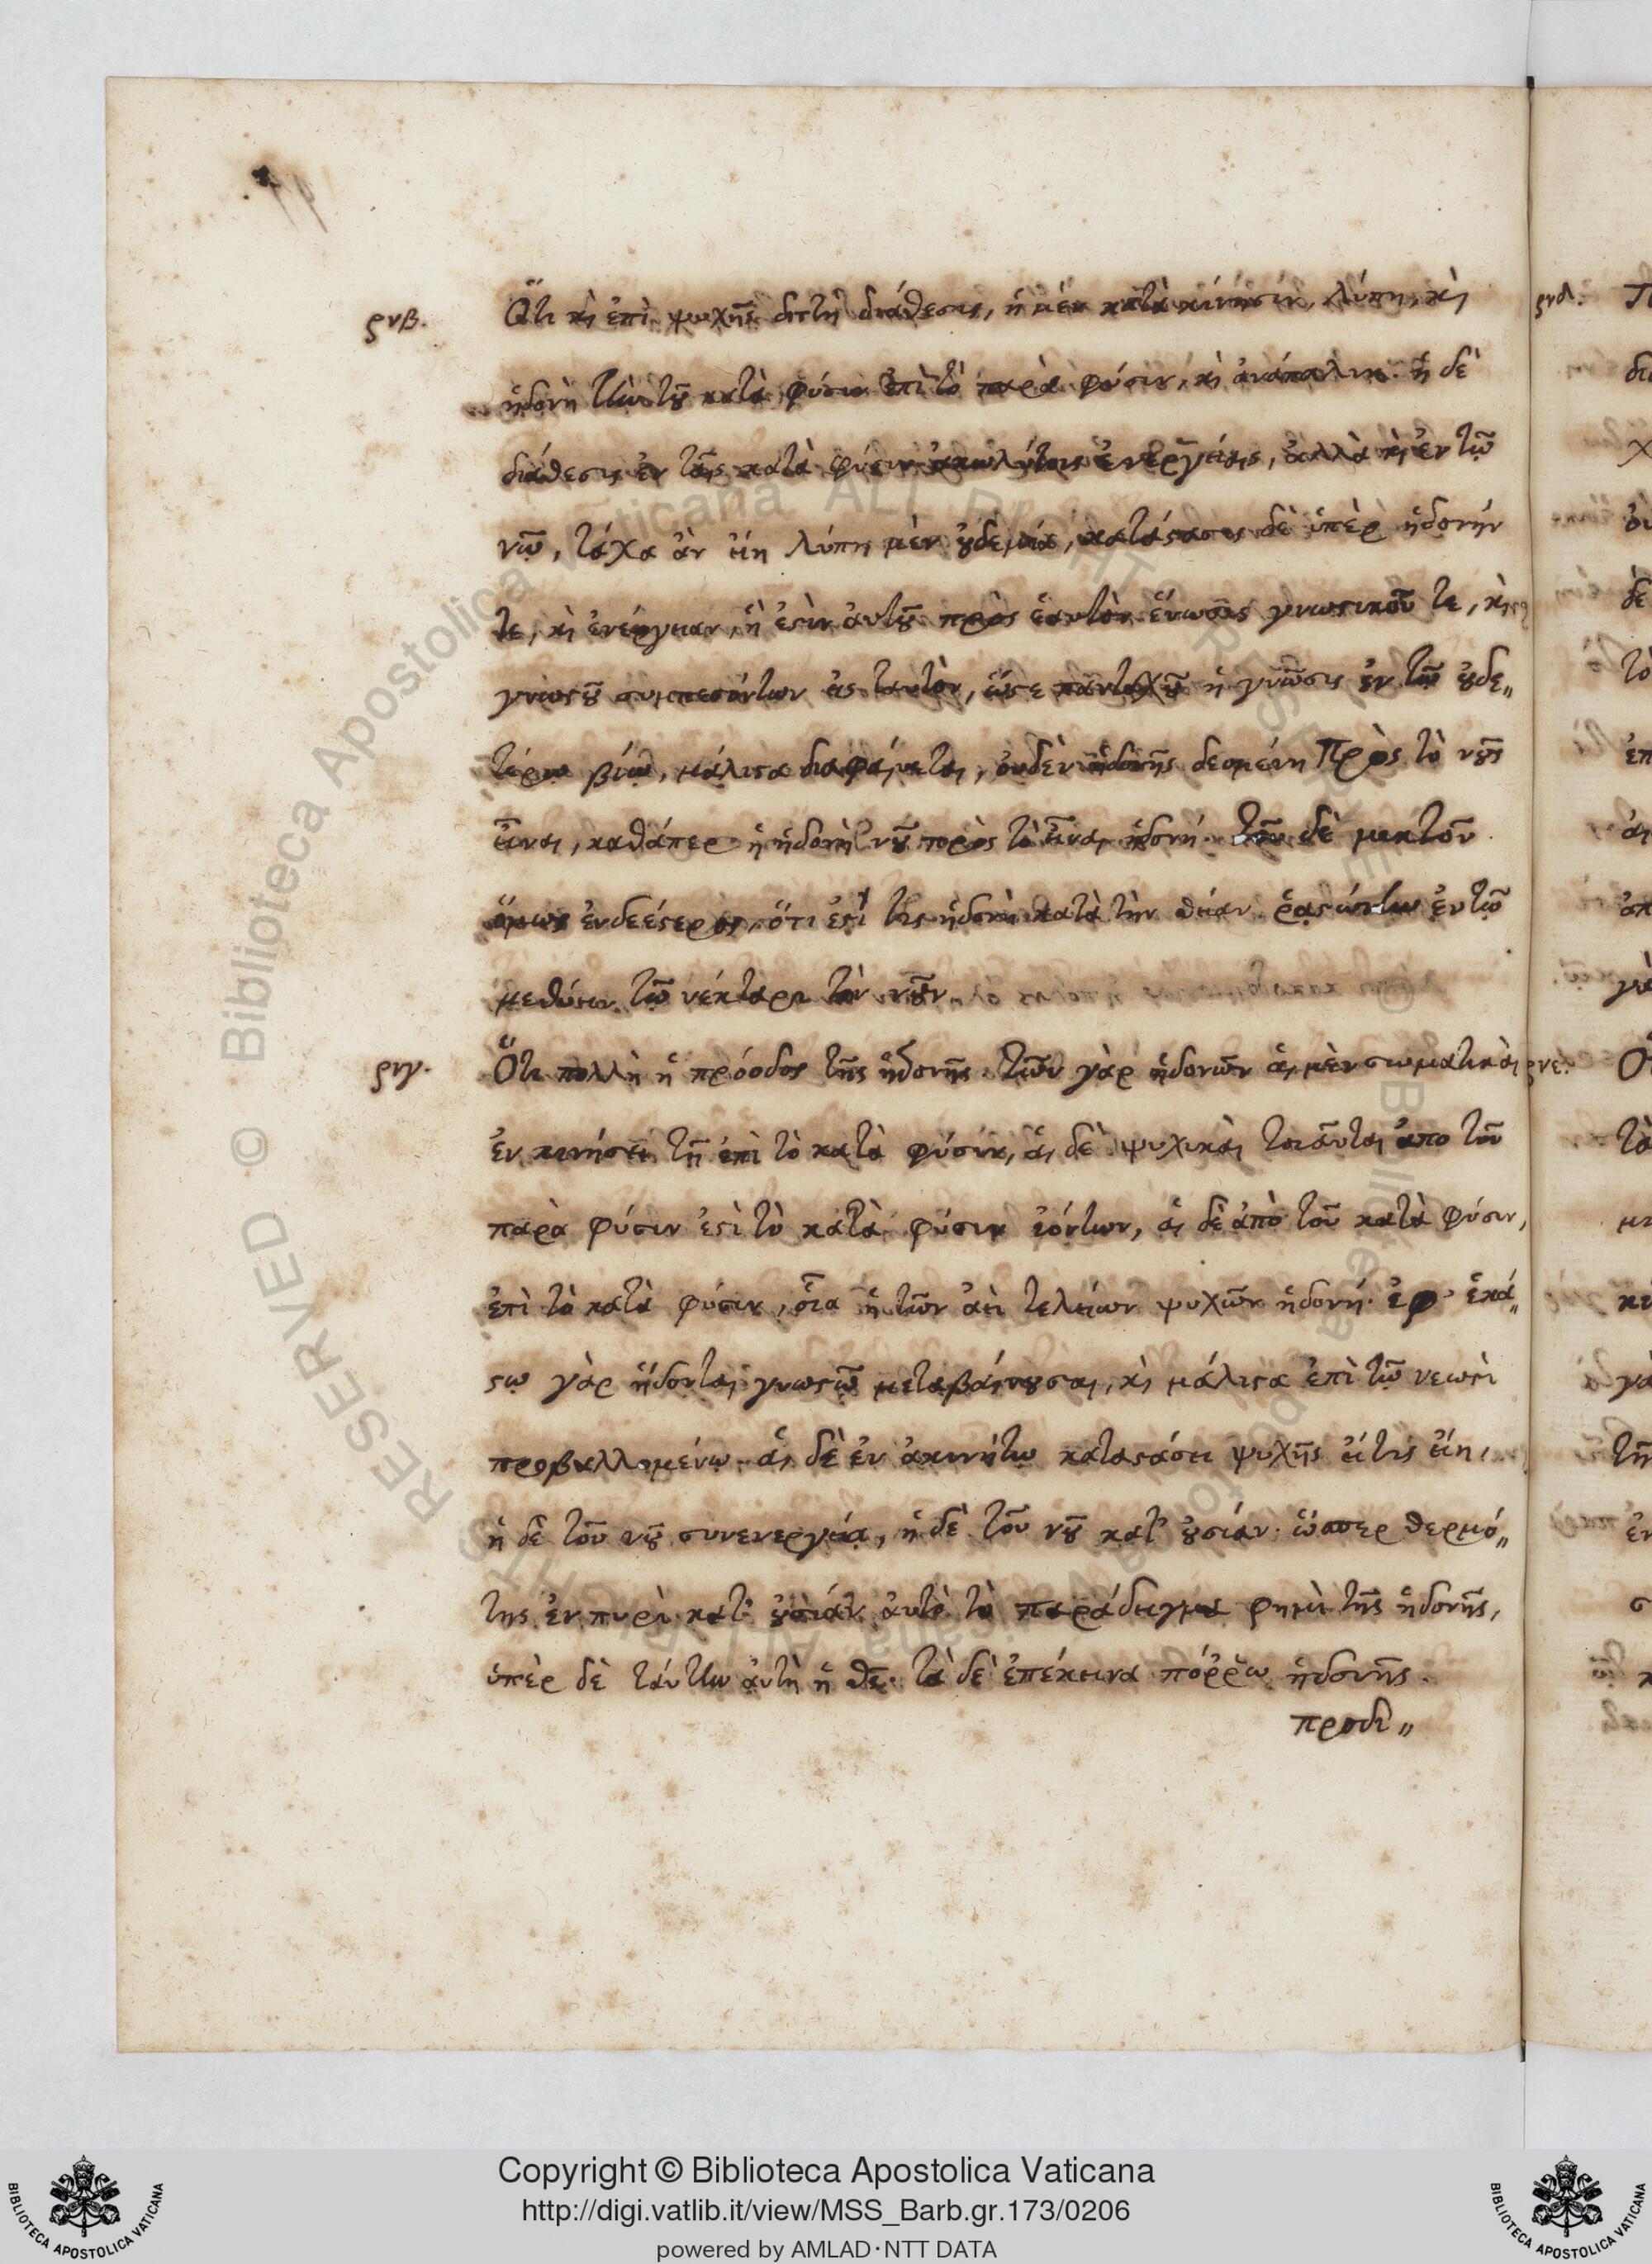 ρνβ. Ὅτι καὶ ἐπὶ ψυχῆς διττὴ διάθεσις, ἡ μὲν κατὰ κίνησιν, λύπη, καὶ
ἡδονὴ τὴν τοῦ κατὰ φύσιν ἐπὶ τὸ παρὰ φύσιν, καὶ ἀνάπαλιν. ἡ δὲ
διάθεσις ἐν ταῖς κατὰ φύσιν ἀκωλύτοις ἐνεργείαις, ἀλλὰ καὶ ἐν τῷ
νῷ, τάχα ἂν εἴη λύπη μὲν οὐδεμία, κατάστασις δὲ ὑπὲρ ἡδονήν
τε, καὶ ἐνέργειαν, ἥ ἐστιν αὐτοῦ πρὸς ἑαυτὸν ἕνωσις γνωστικοῦ τε, καὶ
γνωστοῦ συμπεσόντων εἰς ταυτὸν, ὥστε πανταχοῦ ἡ γνῶσις ἐν τῷ οὐδε„
τέρῳ βίῳ, μάλιστα διαφαίνεται, οὐδὲν ἡδονῆς δεομένη πρὸς τὸ νοῦς
εἶναι, καθάπερ ἡ ἡδονὴ νοῦ πρὸς τὸ εἶναι ἡδονή. τοῦ δὲ μικτοῦ
ὅμως ἐνδεέστερος, ὅτι ἐστί τις ἡδονὴ κατὰ τὴν θείαν ῥαστώνην ἐν τῷ
μεθύειν τῷ νέκταρι τὸν νοῦν
ρνγ. Ὅτι πολλὴ ἡ πρόοδος τῆς ἡδονῆς. τῶν γὰρ ἡδονῶν αἱ μὲν σωματικαὶ
ἐν κινήσει τῇ ἐπὶ τὸ κατὰ φύσιν, αἱ δὲ ψυχικαὶ τοιαῦται ἀπο τοῦ
παρὰ φύσιν ἐπὶ τὸ κατὰ φύσιν ἰόντων, αἱ δὲ ἀπὸ τοῦ κατὰ φύσιν,
ἐπὶ τὸ κατὰ φύσιν, οἷα ἡ τῶν ἀεὶ τελείων ψυχῶν ἡδονή. ἐφ' ἑκά„
στῳ γὰρ ἥδονται γνωστῷ μεταβαίνουσαι, καὶ μάλιστα ἐπὶ τῷ νεωστὶ
προβαλλομένῳ. αἱ δὲ ἐν ἀκινήτῳ καταστάσει ψυχῆς εἴ τις εἴη,
ἡ δὲ τοῦ νοῦ συνενεργεία, ἡ δὲ τοῦ νοῦ κατ' οὐσίαν. ὥσπερ θερμό„
της ἐν πυρὶ κατ' οὐσίαν αὐτὸ τὸ παράδειγμα φημὶ τῆς ἡδονῆς,
ὑπὲρ δὲ ταύτην αὐτὴ ἡ θε. τὰ δὲ ἐπέκεινα πόῤῥω ἡδονῆς.
προδι„
ρνδ.
ρνε.
Copyright © Biblioteca Apostolica Vaticana
http://digi.vatlib.it/view/MSS_Barb.gr.173/0206
powered by AMLAD·NTT DATA
BIBLIOTECA APOSTOLICA VATICANA
BIBLIOTECA APOSTOLICA VATICANA